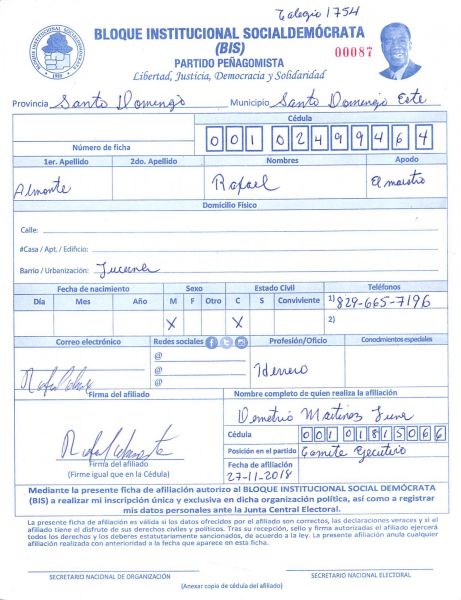 Colegio 1754
BLOQUE INSTITUCIONAL SOCIALDEMÓCRATA
(BIS)
00087
PARTIDO PEÑAGOMISTA
Libertad, Justicia, Democracia y Solidaridad
Provincia Santo Domingo Municipio Santo Domingo Este
Cédula
Número de ficha 001 0249946 4
1er. Apellido 2do. Apellido Nombres Apodo
Almonte Rafael El maestro
Domicilio Físico
Calle:
#Casa / Apt. / Edificio:
Barrio / Urbanización: Lucerna
Fecha de nacimiento Sexo Estado Civil Teléfonos
Día Mes Año M F Otro C S Conviviente 1) 829-665-7196
X X 2)
Correo electrónico Redes sociales Profesión/Oficio Conocimientos especiales
@
@
@
Herrero
Firma del afiliado Nombre completo de quien realiza la afiliación
Demetrio Martinez
Cédula 001 0181506 6
Posición en el partido Comite Ejecutivo
Firma del afiliado
(Firma igual que en la Cédula)
Fecha de afiliación
27-11-2018
Mediante la presente ficha de afiliación autorizo al BLOQUE INSTITUCIONAL SOCIAL DEMÓCRATA
(BIS) a realizar mi inscripción única y exclusiva en dicha organización política, así como a registrar
mis datos personales ante la Junta Central Electoral.
La presente ficha de afiliación es válida si los datos ofrecidos por el afiliado son correctos, las declaraciones veraces y si el
afiliado tiene el disfrute de sus derechos civiles y políticos. Tras su recepción, sello y firma autorizadas el afiliado ejercerá
todos los derechos y los deberes estatutariamente sancionados, de acuerdo a la ley. La presente afiliación anula cualquier
afiliación realizada con anterioridad a la fecha que aparece en esta ficha.
SECRETARIO NACIONAL DE ORGANIZACIÓN SECRETARIO NACIONAL ELECTORAL
(Anexar copia de cédula del afiliado)